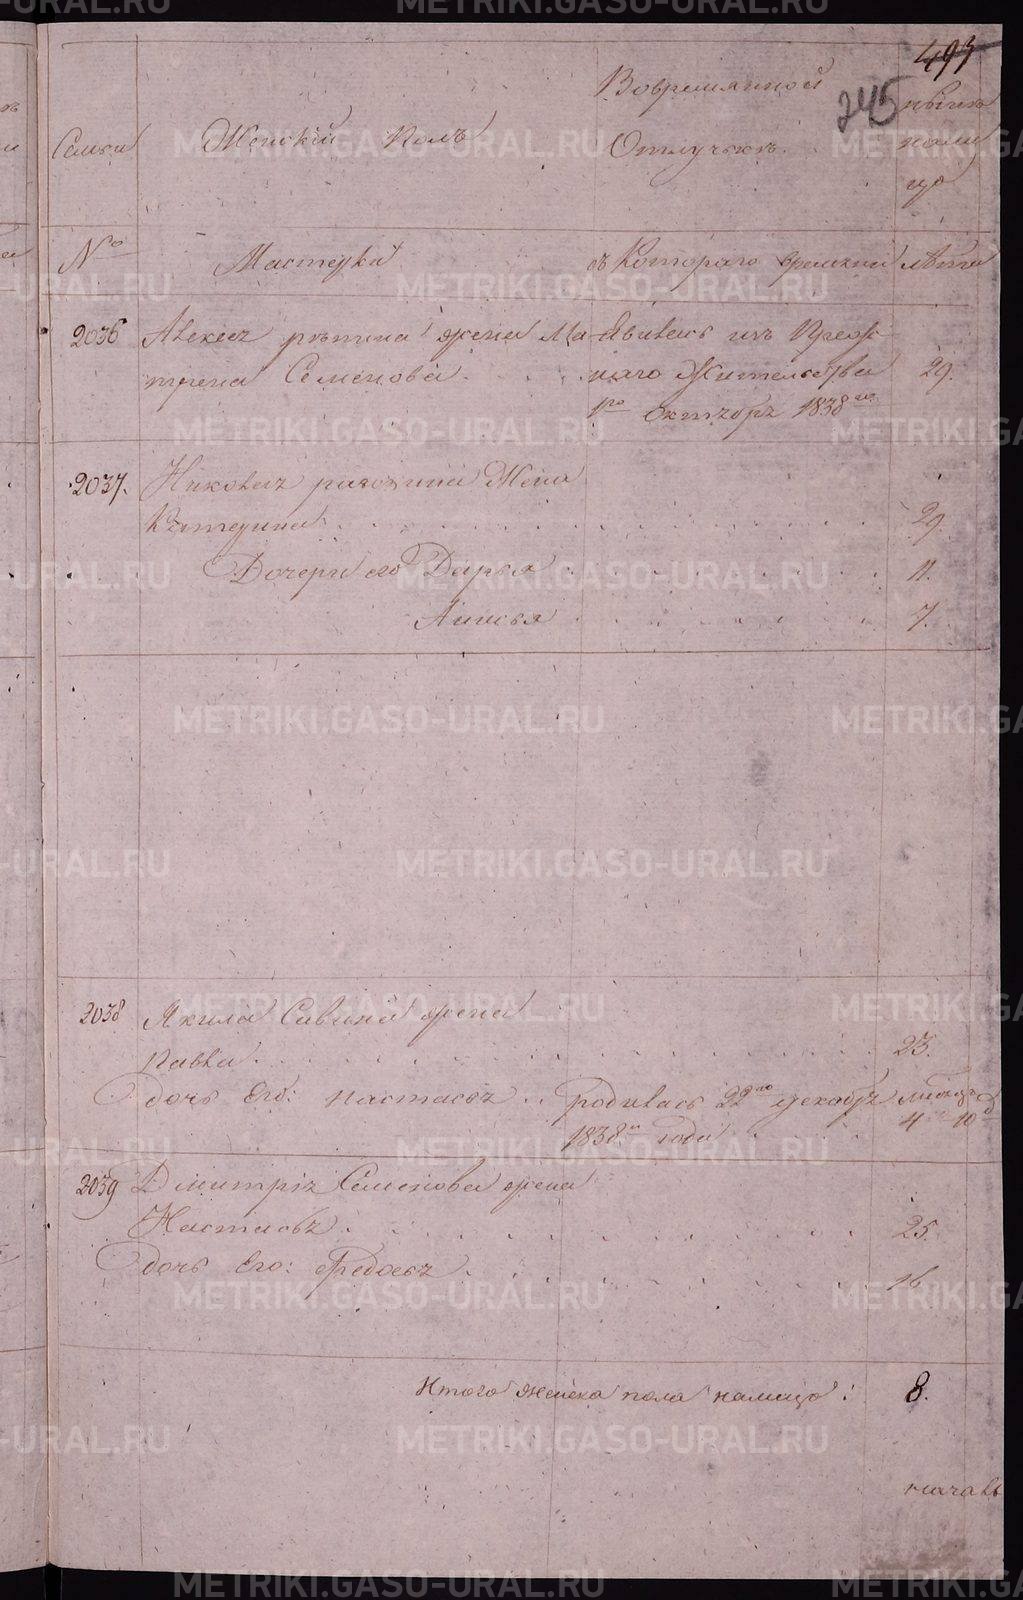 493
245
Семьи
Женскій Полъ
Вовремянной
Отлучьке.
нынѣ
на ли
цо
№
Мастерка
съ Котораго времяни
лѣта
2036
Алексея жена Ма
трена Семенова
Явилась изъ Преж
няго Жительства
1го октября 1838го
29.
2037.
жена
Катерина
29.
Дочери его Дарья
11.
Анисья
7.
2038
Акила Савина жена
Павла
23.
дочь Его: настасья
родилась 22го декабря
1838го года
4 10
2039
Дмитрія Семенова жена
Настасья
25.
дочь Его: Федосья
16.
Итого женска пола налицо:
8.